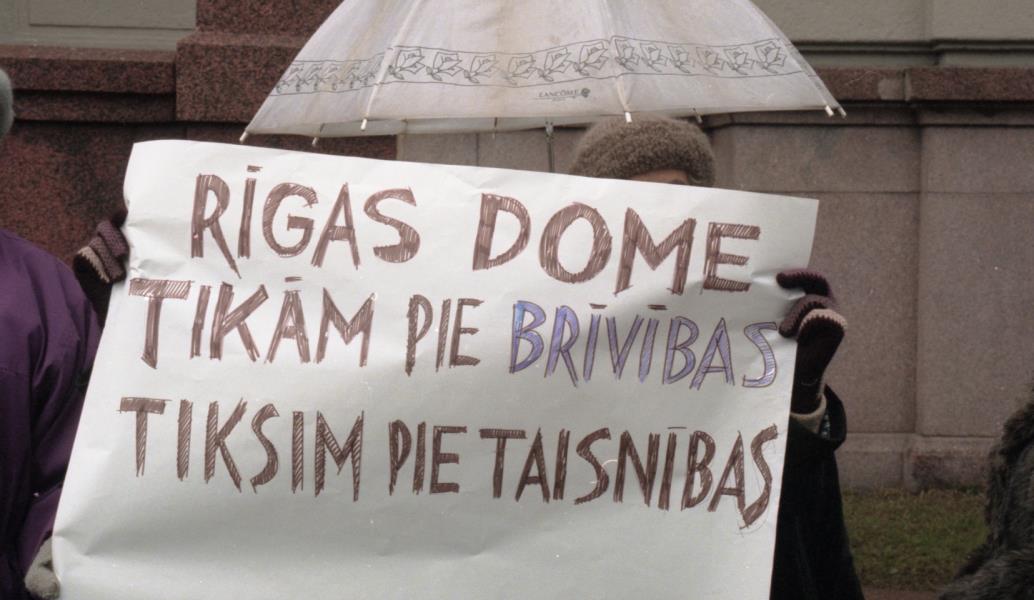 LANCÔME
RĪGAS DOME
TIKĀM PIE BRĪVĪBAS
TIKSIM PIE TAISNĪBAS